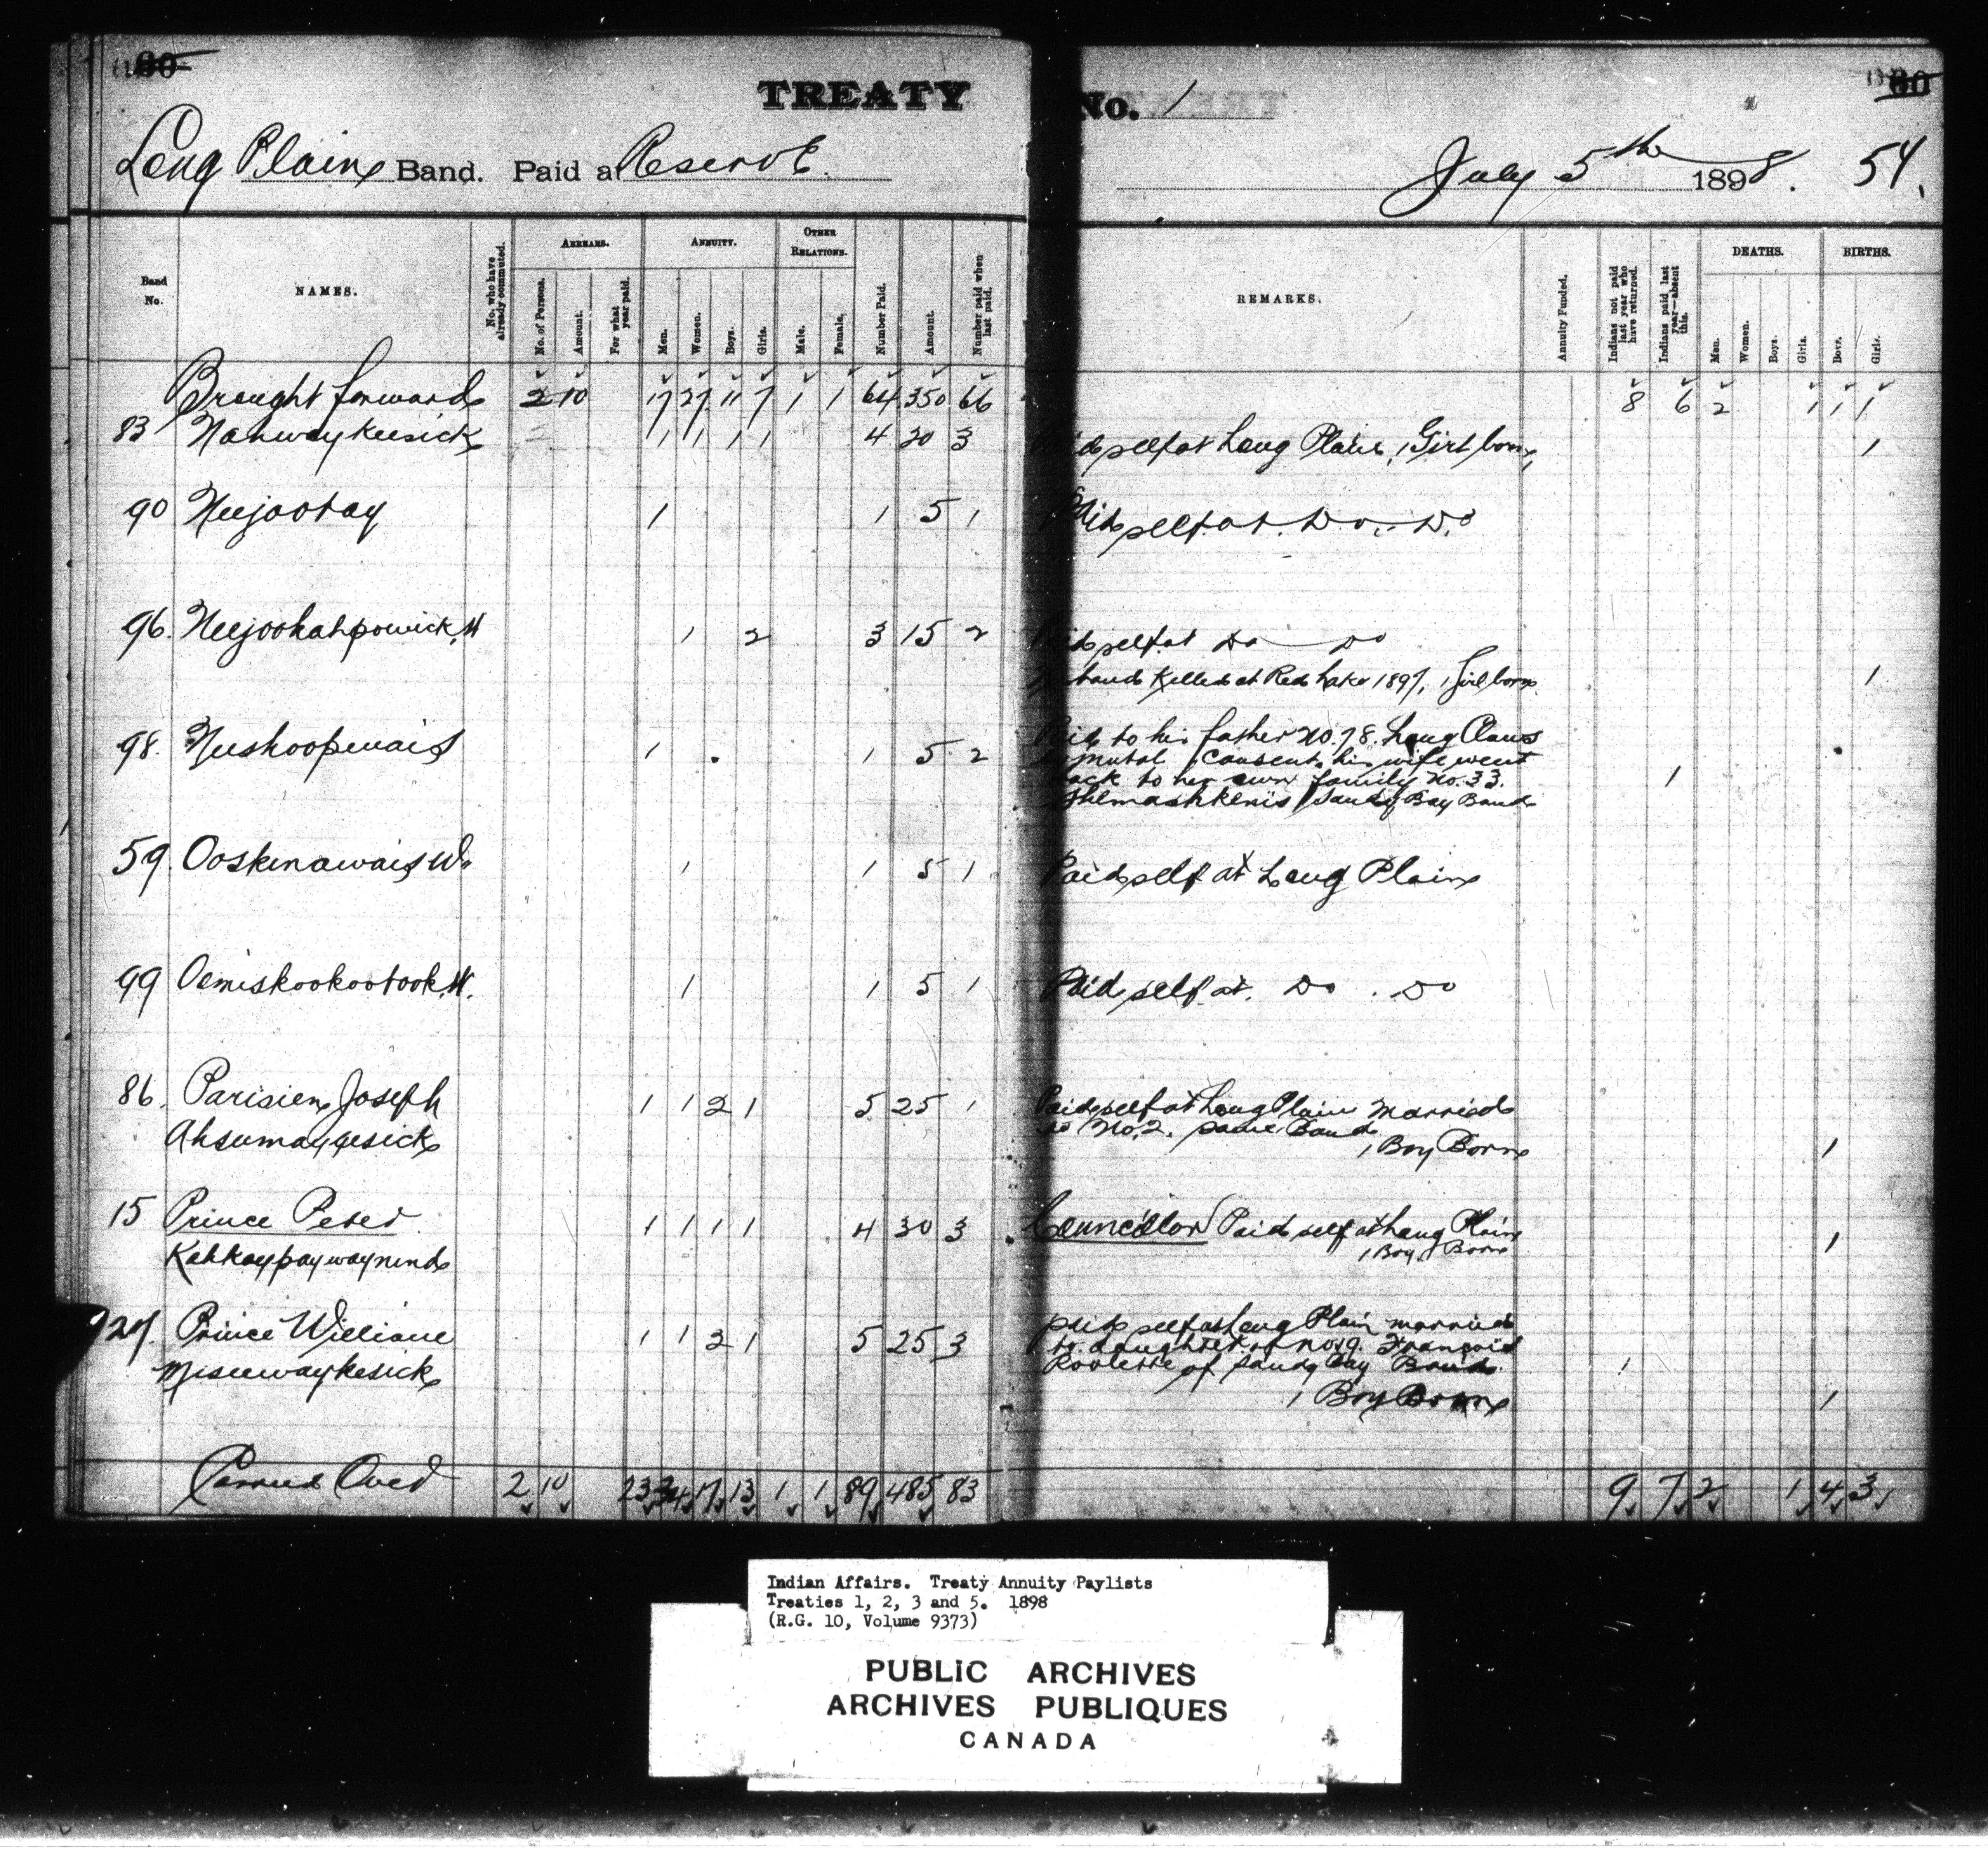 60
TREATY No. 1
60
Long Plain Band. Paid at Reserve.
July 5th 1898. 54.
Band No.
NAMES.
No. who have already commuted.
ARREARS.
No. of Persons.
Amount.
For what year paid.
ANNUITY.
Men.
Women.
Boys.
Girls.
OTHER RELATIONS.
Male.
Female.
Number Paid.
Amount.
Number paid when last paid.
REMARKS.
Annuity Funded.
Indians not paid last year who have returned.
Indians paid last year—absent this.
DEATHS.
Men.
Women.
Boys.
Girls.
BIRTHS.
Boys.
Girls.
Brought forward 2 10 17 27 11 7 1 1 64 350 66 8 6 2 1 1 1
83 Nahwaykeesick 1 1 1 1 4 30 3 Paid self at Long Plain, 1 Girl born, 1
90 Neejootay 1 1 5 1 Paid self at Do. Do
96. Neejookahpowick, W 1 2 3 15 2 Paid self at Do Do
Husband Killed at Red Lake 1897, 1 Girl born 1
98. Neeshoopenais 1 1 5 2 Paid to his father No. 78. Long Claws
by mutal consent his wife went
back to her own family No. 33. 1
Shemashkenis Sandy Bay Band
59. Ooskinawais W. 1 1 5 1 Paid self at Long Plain
99 Oemiskookootook, W. 1 1 5 1 Paid self at. Do. Do
86. Parisien Joseph 1 1 2 1 5 25 1 Paid self at Long Plain Married
to No. 2. same Band
Ahsumaygesick 1 Boy Born 1
15 Prince Peter 1 1 1 1 4 30 3 Councillor Paid self at Long Plain 1
1 Boy Born
Kahkaypaywaynind
127. Prince William 1 1 2 1 5 25 3 Paid self at Long Plain married
to daughter of No. 19. François
Roulette of Sandy Bay Band. 1
Miseewaykesick
1 Boy Born 1
Carried Over 2 10 23 34 17 13 1 1 89 485 83 9 7 2 1 4 3
Indian Affairs. Treaty Annuity Paylists
Treaties 1, 2, 3 and 5. 1898
(R.G. 10, Volume 9373)
PUBLIC ARCHIVES
ARCHIVES PUBLIQUES
CANADA